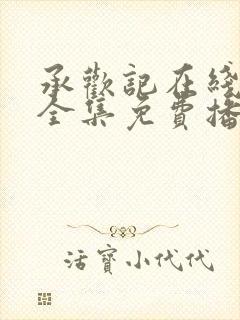 承歡記在綫
全集免費播
活寶小代代